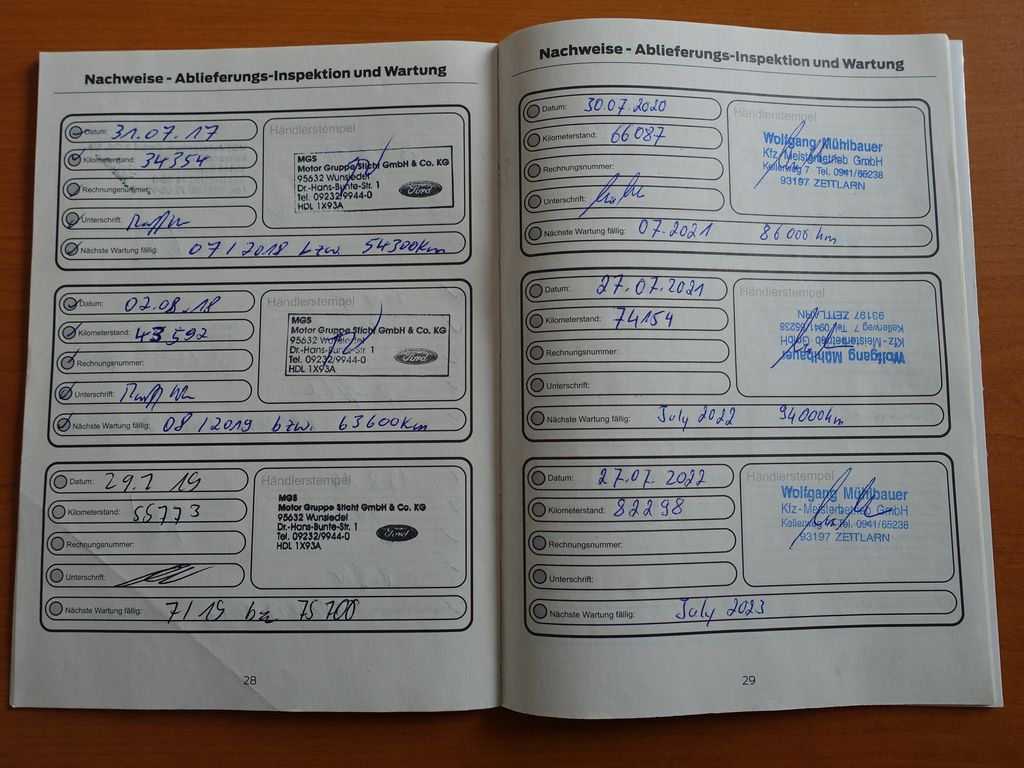 Nachweise - Ablieferungs-Inspektion und Wartung
Datum: 31.07.17
Kilometerstand: 34354
Rechnungsnummer:
Unterschrift:
Nächste Wartung fällig: 07/2018 bzw. 54300km
Händlerstempel
MGS
Motor Gruppe Sticht GmbH & Co. KG
95632 Wunsiedel
Dr.-Hans-Bunte-Str. 1
Tel. 09232/9944-0
HDL 1X93A
Ford
Datum: 02.08.18
Kilometerstand: 43592
Rechnungsnummer:
Unterschrift:
Nächste Wartung fällig: 08/2019 bzw. 63600km
Händlerstempel
MGS
Motor Gruppe Sticht GmbH & Co. KG
95632 Wunsiedel
Dr.-Hans-Bunte-Str. 1
Tel. 09232/9944-0
HDL 1X93A
Ford
Datum: 29.7 19
Kilometerstand: 55773
Rechnungsnummer:
Unterschrift:
Nächste Wartung fällig: 7/19 bz 75700
Händlerstempel
MGS
Motor Gruppe Sticht GmbH & Co. KG
95632 Wunsiedel
Dr.-Hans-Bunte-Str. 1
Tel. 09232/9944-0
HDL 1X93A
Ford
28
Nachweise - Ablieferungs-Inspektion und Wartung
Datum: 30.07.2020
Kilometerstand: 66087
Rechnungsnummer:
Unterschrift:
Nächste Wartung fällig: 07.2021 86000km
Händlerstempel
Wolfgang Mühlbauer
Kfz-Meisterbetrieb GmbH
Kellerweg 7 Tel. 0941/65238
93197 ZEITLARN
Datum: 27.07.2021
Kilometerstand: 74154
Rechnungsnummer:
Unterschrift:
Nächste Wartung fällig: July 2022 94000km
Händlerstempel
Wolfgang Mühlbauer
Kfz-Meisterbetrieb GmbH
Kellerweg 7 Tel. 0941/65238
93197 ZEITLARN
Datum: 27.07.2022
Kilometerstand: 82298
Rechnungsnummer:
Unterschrift:
Nächste Wartung fällig: July 2023
Händlerstempel
Wolfgang Mühlbauer
Kfz-Meisterbetrieb GmbH
Kellerweg 7 Tel. 0941/65238
93197 ZEITLARN
29